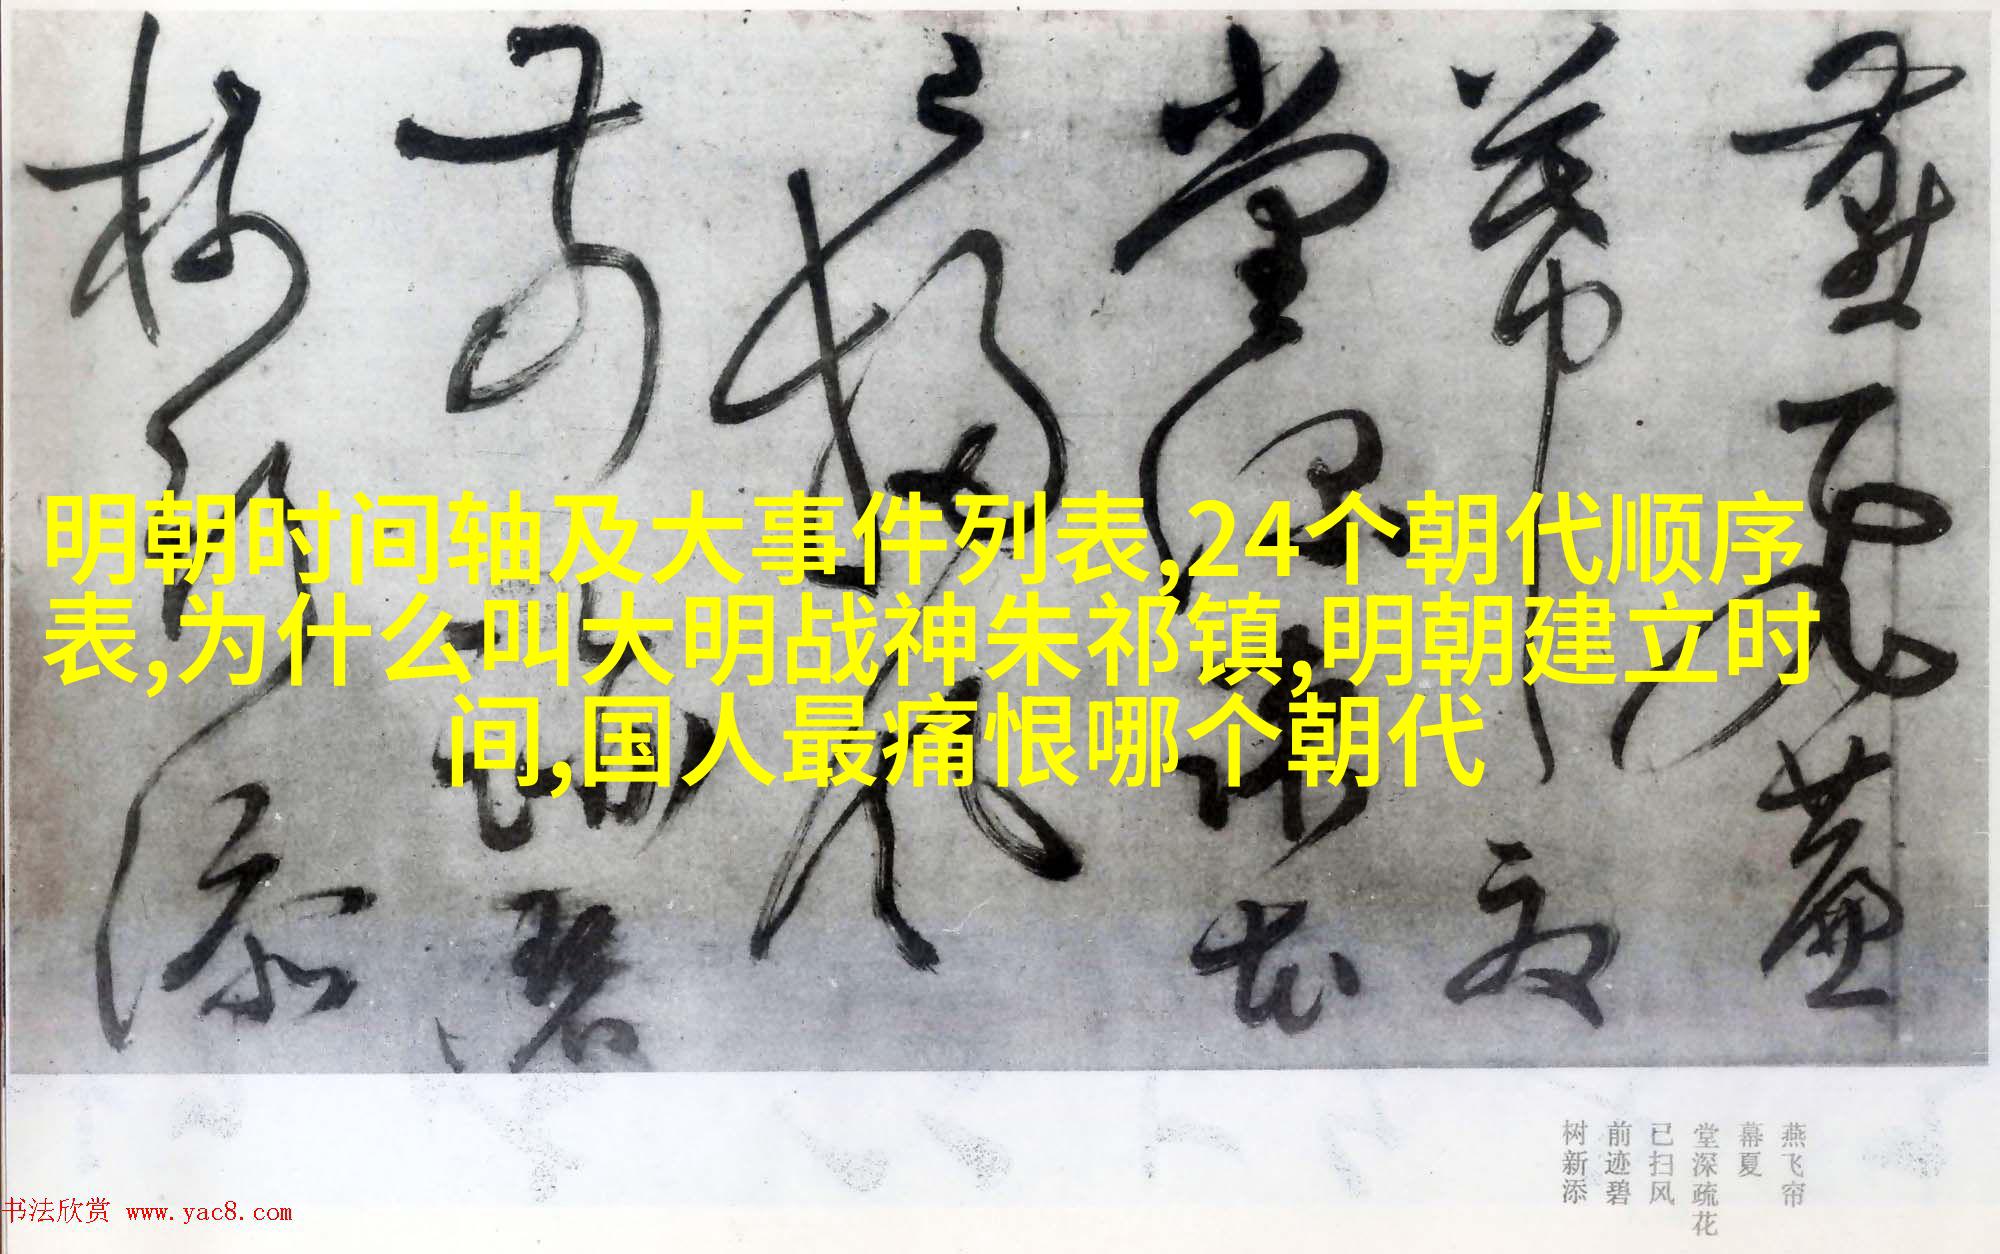 明朝时间轴及大事件列表,24个朝代顺序
表,为什么叫大明战神朱祁镇,明朝建立时
间,国人最痛恨哪个朝代
燕飞帘
幕夏
堂深疏花
已扫风
前迹碧
树新添
书法欣赏 www.yac8.com